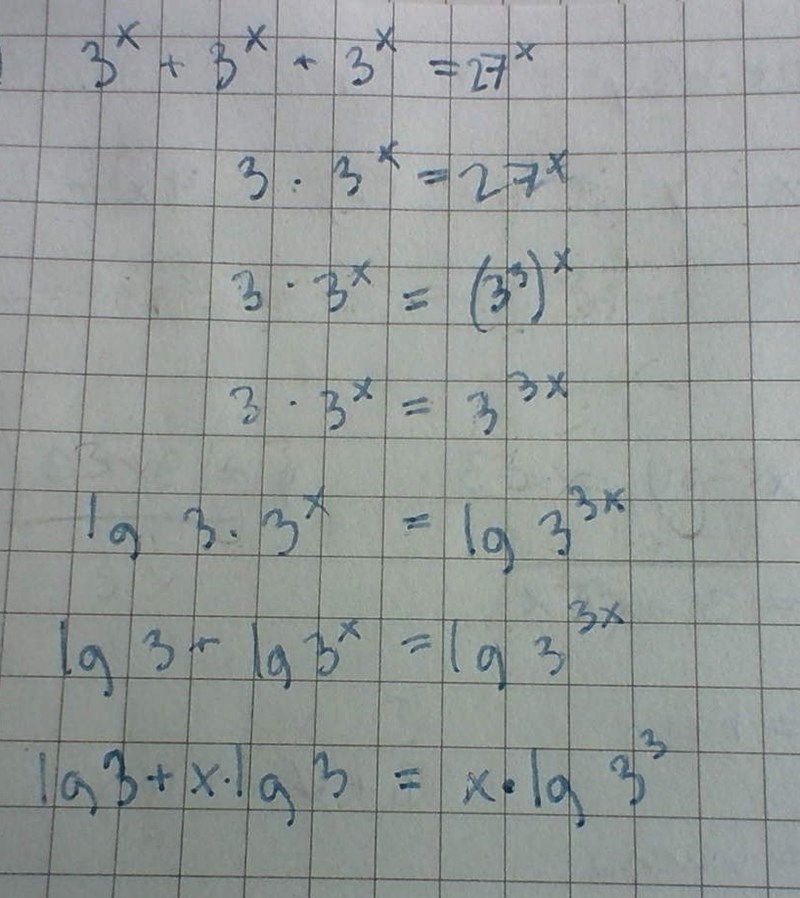 3^x + 3^x + 3^x = 27^x
3 · 3^x = 27^x
3 · 3^x = (3^3)^x
3 · 3^x = 3^{3x}
lg 3 · 3^x = lg 3^{3x}
lg 3 + lg 3^x = lg 3^{3x}
lg 3 + x · lg 3 = x · lg 3^3